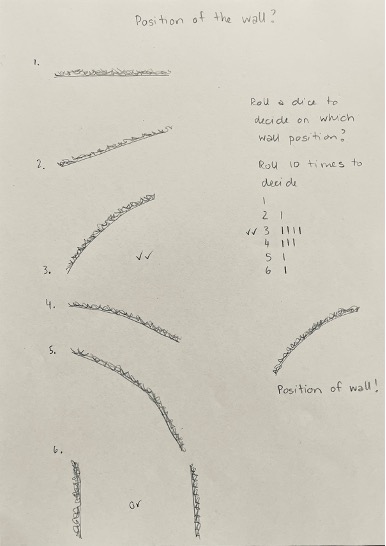 Position of the wall?
1.
Roll a dice to
decide on which
wall position?
Roll 10 times to
decide
1
2 |
✓✓ 3 ||||
4 |||
5 |
6 |
2.
3. ✓✓
4.
5.
Position of wall!
6.
or